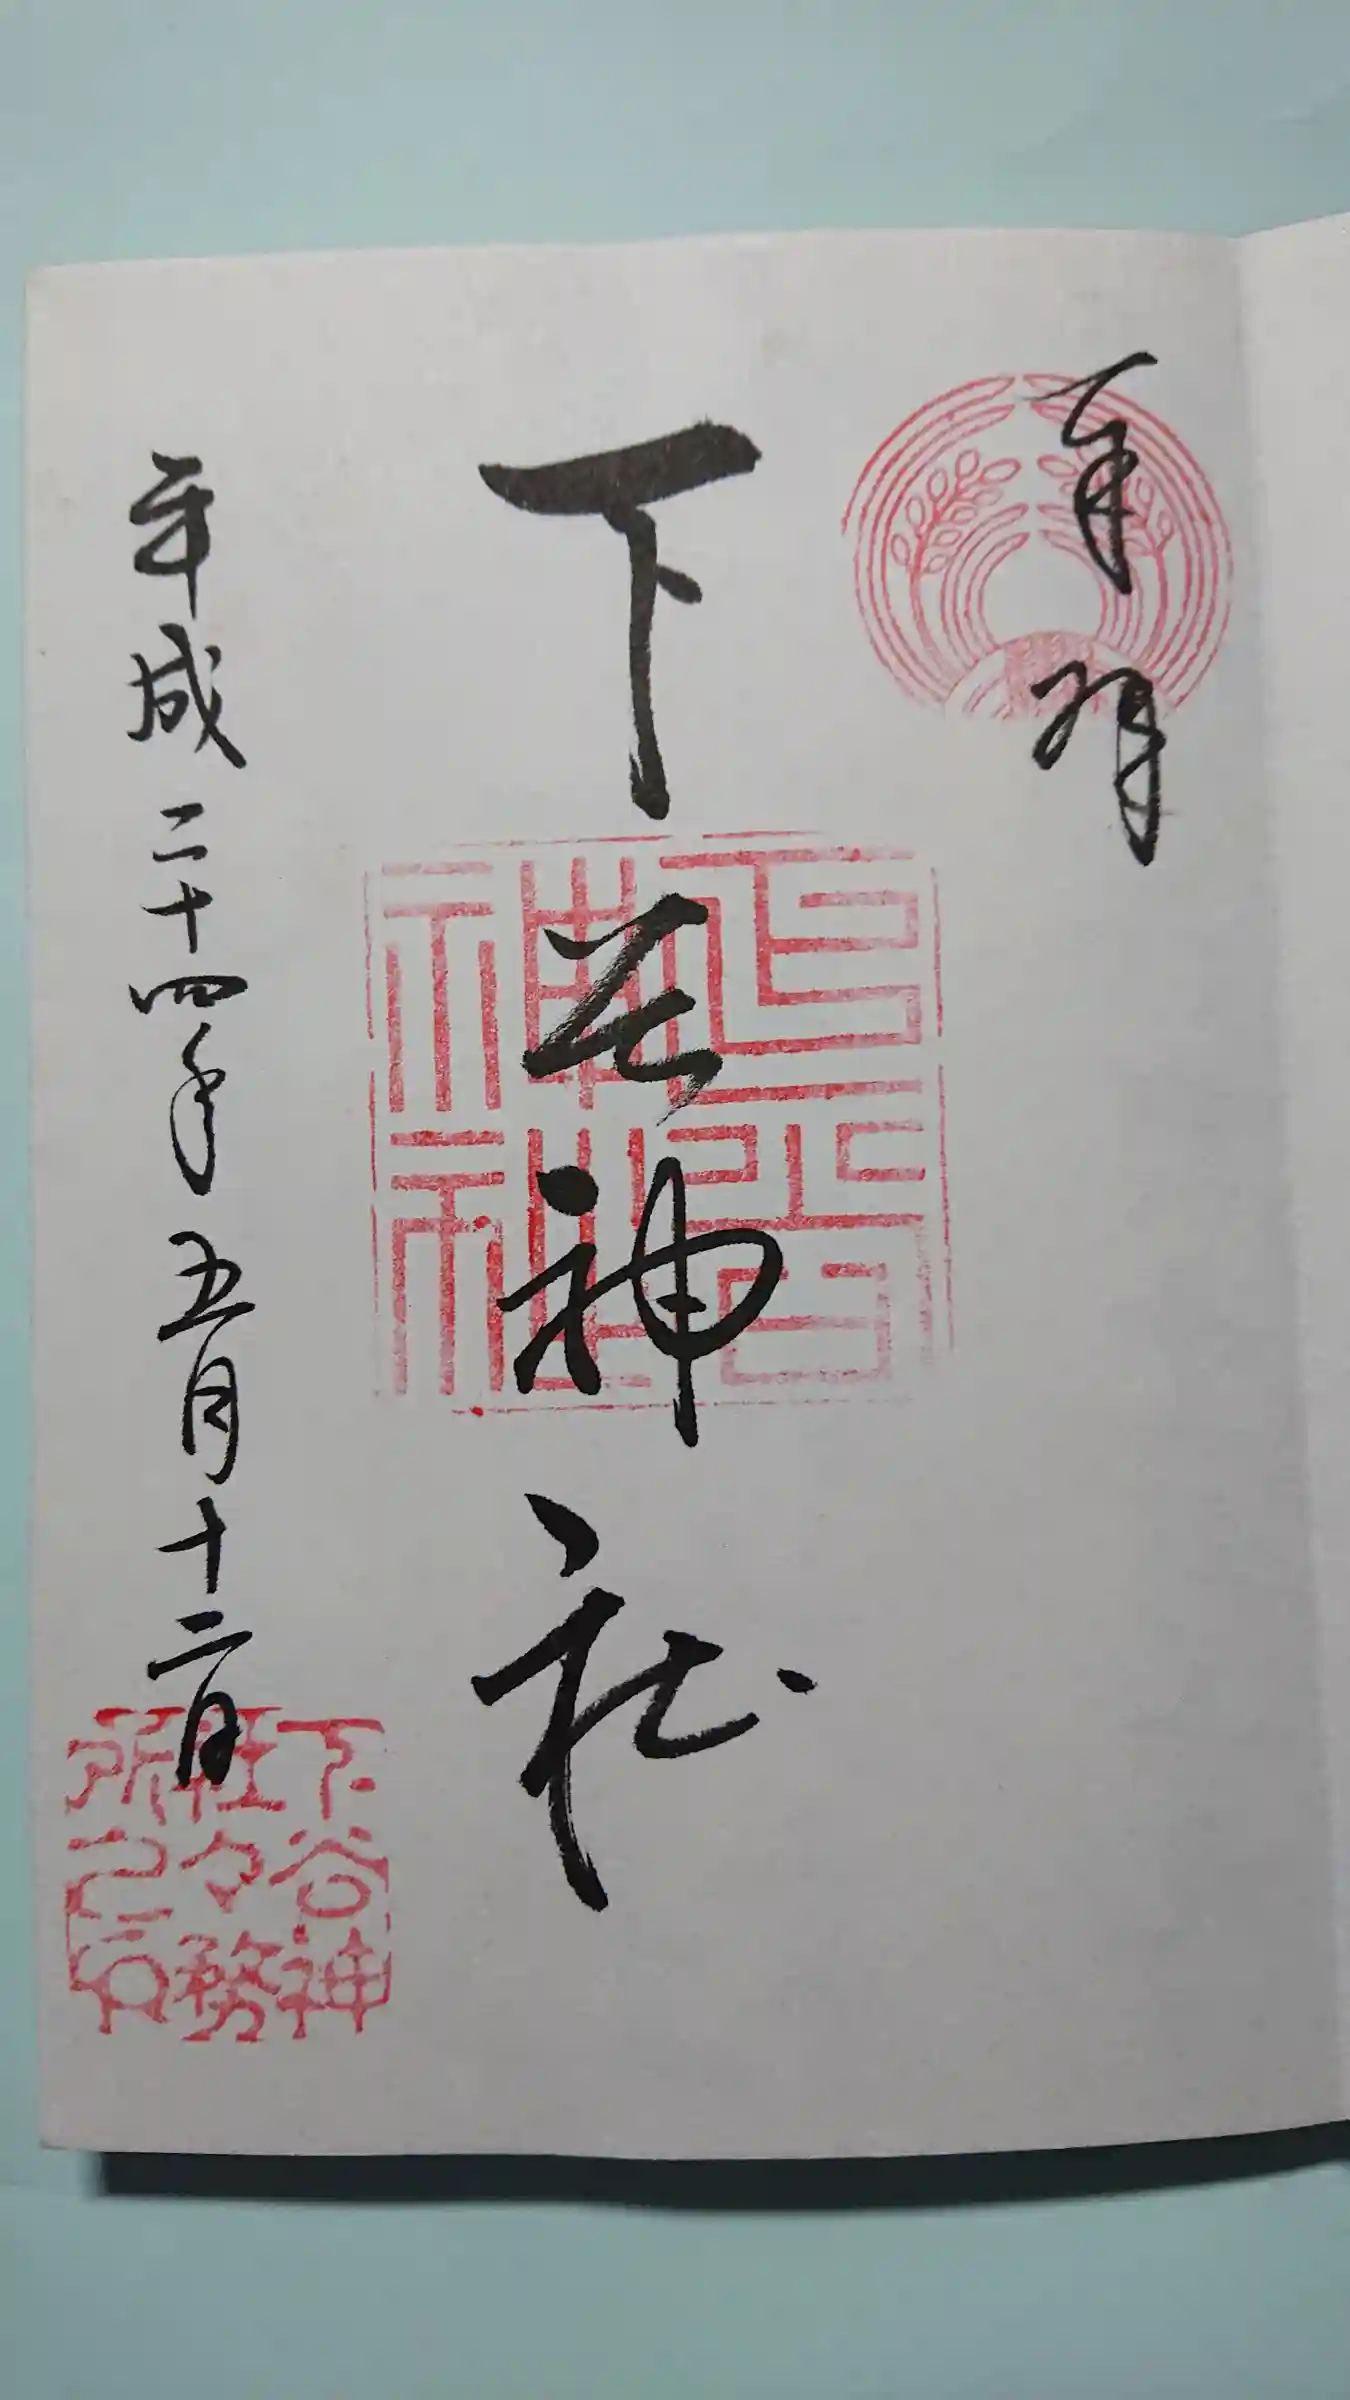 奉拝
下谷神社
下谷
神社
平成二十四年五月十二日
下谷神
社々務
所之印